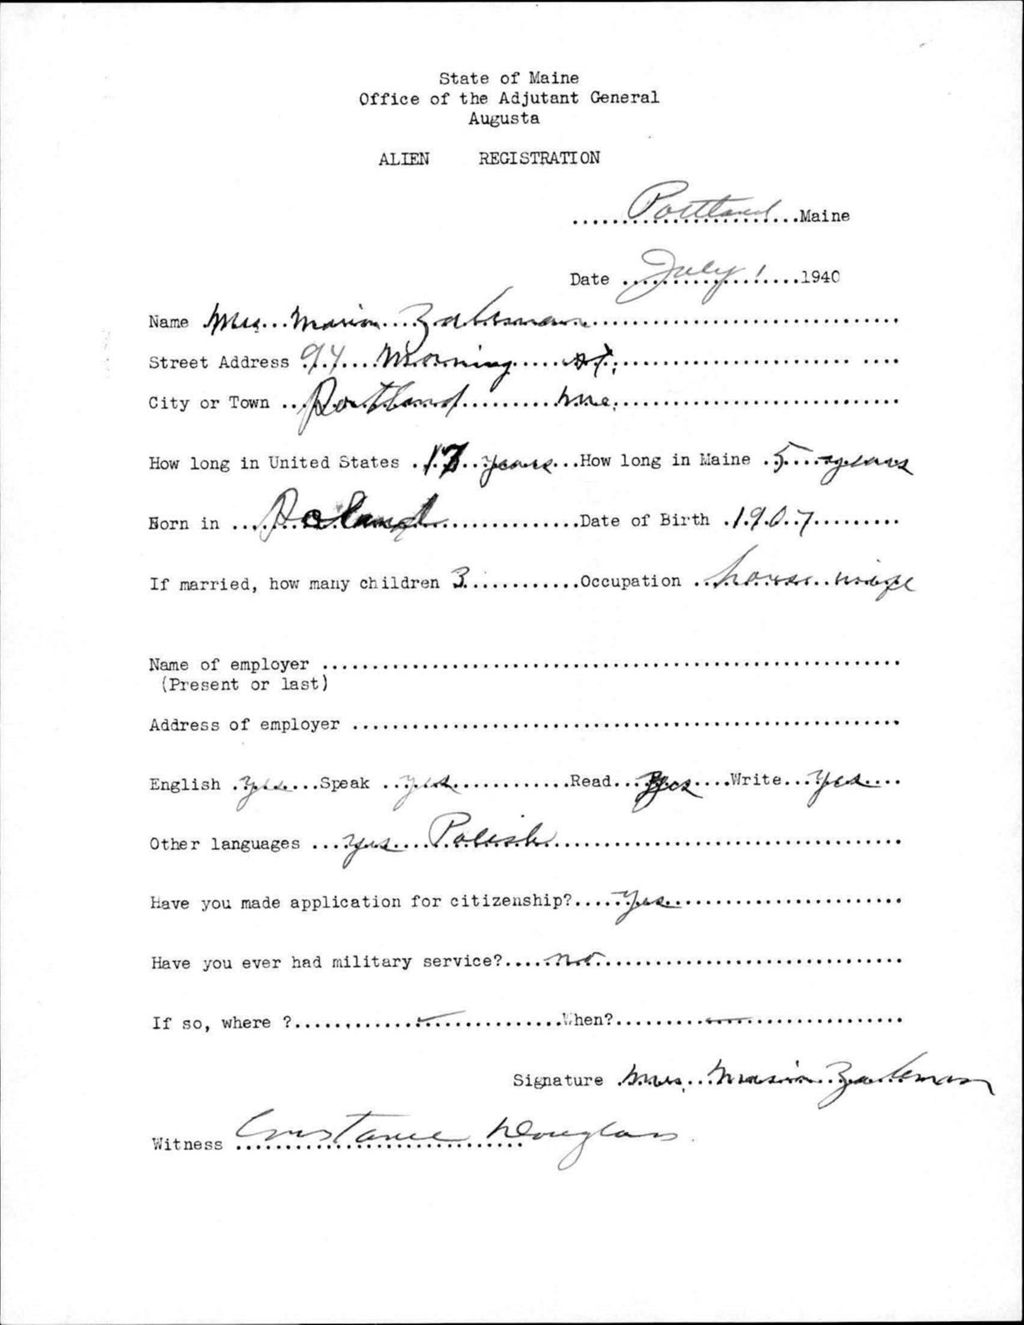 State of Maine
Office of the Adjutant General
Augusta
ALIEN REGISTRATION
Portland Maine
Date July 1 1940
Name Mrs. Marion
Street Address 94 Morning St.
City or Town Portland Me.
How long in United States 17 years How long in Maine 5 years
Born in Poland Date of Birth 1907
If married, how many children 3 Occupation house wife
Name of employer
(Present or last)
Address of employer
English yes Speak yes Read yes Write yes
Other languages yes Polish
Have you made application for citizenship? yes
Have you ever had military service? no
If so, where ? When?
Signature Mrs. Marion
Witness Constance Douglass